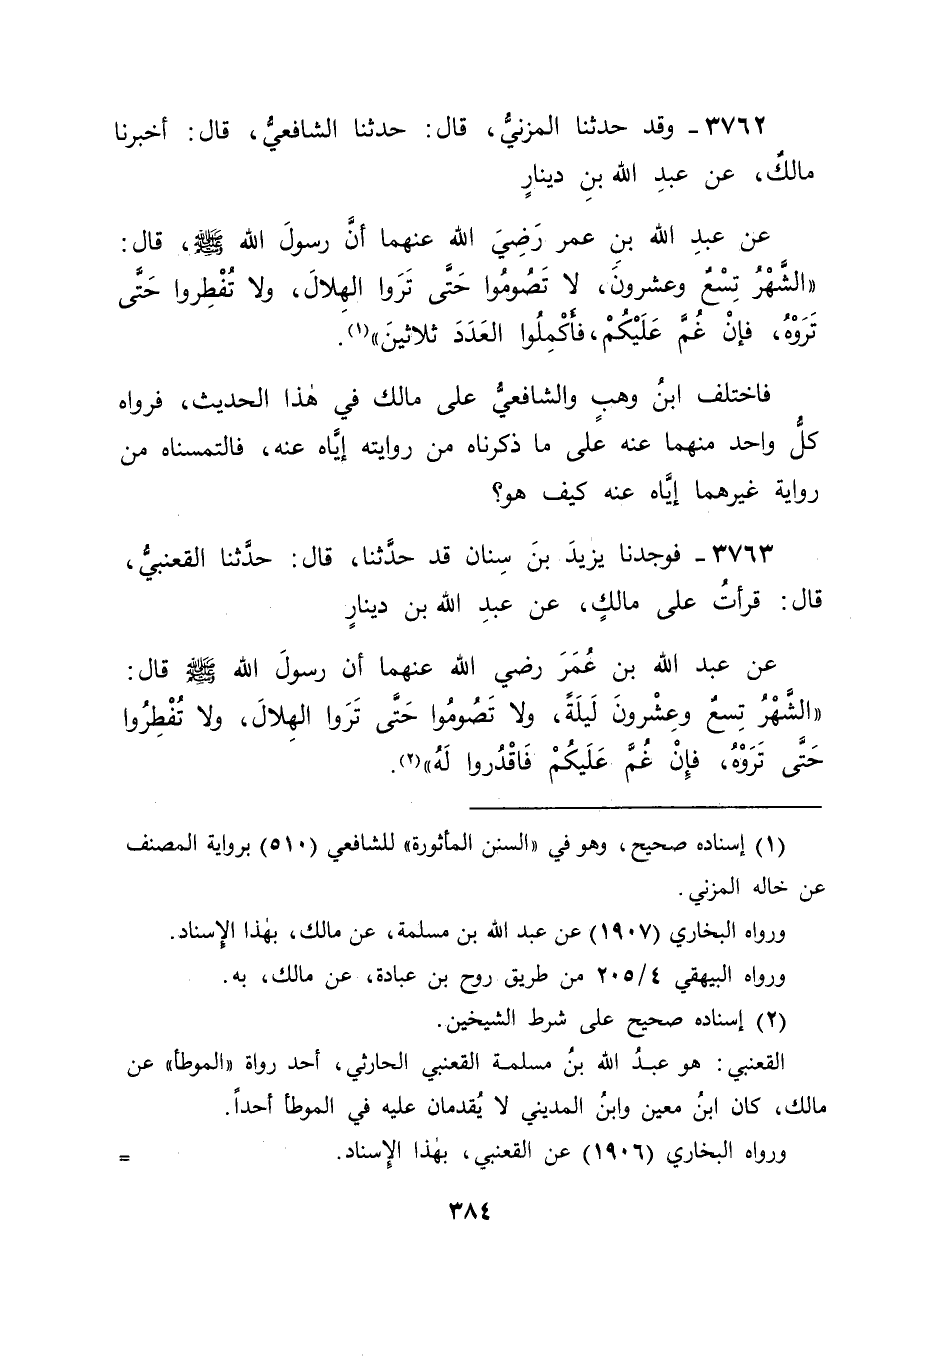 ٣٧٦٢ ـ وقد حدثنا المزنيُّ، قال: حدثنا الشافعيُّ، قال: أخبرنا
مالكٌ، عن عبدِ الله بنِ دينارٍ
عن عبدِ الله بنِ عمر رَضِيَ الله عنهما أنَّ رسولَ الله ﷺ، قال:
«الشَّهْرُ تِسْعٌ وعشرونَ، لا تَصُومُوا حَتَّى تَرَوا الهِلالَ، ولا تُفْطِروا حَتَّى
تَرَوْهُ، فإنْ غُمَّ عَلَيْكُمْ، فأَكْمِلُوا العَدَدَ ثلاثينَ»(١).
فاختلف ابنُ وهبٍ والشافعيُّ على مالك في هٰذا الحديث، فرواه
كلُّ واحد منهما عنه على ما ذكرناه من روايته إيَّاه عنه، فالتمسناه من
رواية غيرهما إيَّاه عنه كيف هو؟
٣٧٦٣ ـ فوجدنا يزيدَ بنَ سِنان قد حدَّثنا، قال: حدَّثنا القعنبيُّ،
قال: قرأتُ على مالكٍ، عن عبدِ الله بن دينارٍ
عن عبد الله بن عُمَرَ رضي الله عنهما أن رسولَ الله ﷺ قال:
«الشَّهْرُ تِسعٌ وعِشْرونَ لَيلَةً، ولا تَصُومُوا حَتَّى تَرَوا الهِلالَ، ولا تُفْطِرُوا
حَتَّى تَرَوْهُ، فإِنْ غُمَّ عَلَيكُمْ فَاقْدُروا لَهُ»(٢).
(١) إسناده صحيح، وهو في «السنن المأثورة» للشافعي (٥١٠) برواية المصنف
عن خاله المزني.
ورواه البخاري (١٩٠٧) عن عبد الله بن مسلمة، عن مالك، بهٰذا الإِسناد.
ورواه البيهقي ٢٠٥/٤ من طريق روح بن عبادة، عن مالك، به.
(٢) إسناده صحيح على شرط الشيخين.
القعنبي: هو عبدُ الله بنُ مسلمة القعنبي الحارثي، أحد رواة «الموطأ» عن
مالك، كان ابنُ معين وابنُ المديني لا يُقدمان عليه في الموطأ أحداً.
ورواه البخاري (١٩٠٦) عن القعنبي، بهٰذا الإِسناد. =
٣٨٤